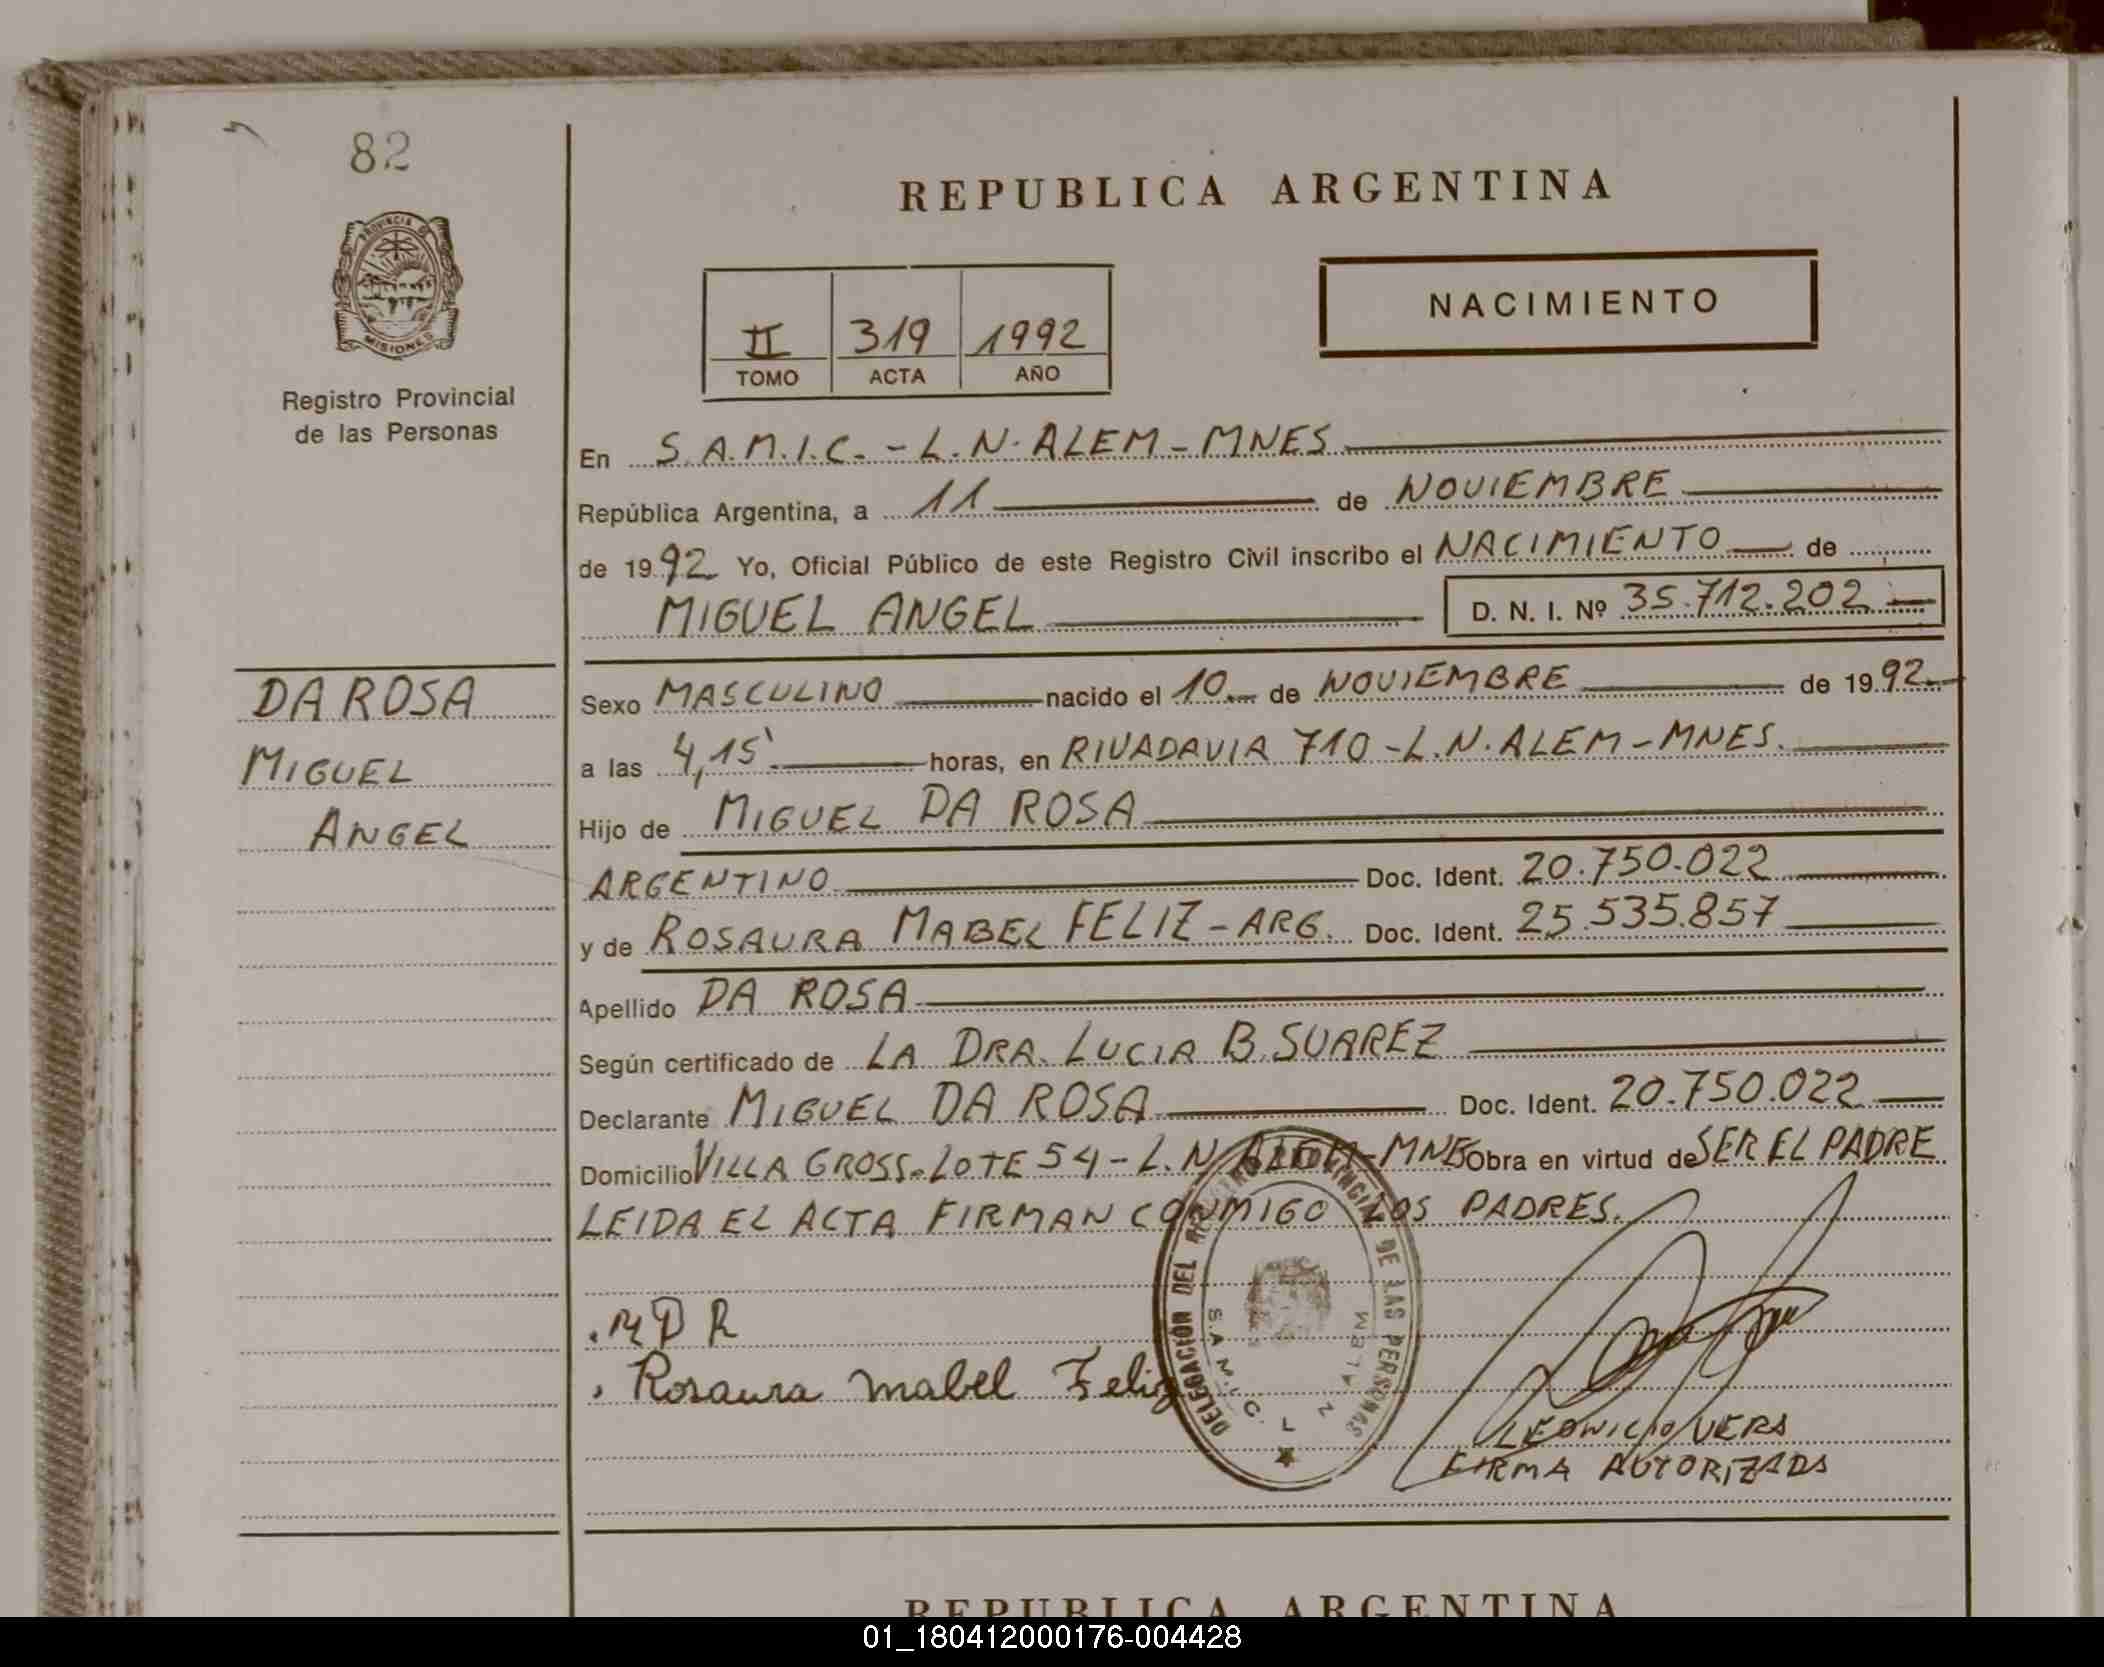 82
REPUBLICA ARGENTINA
PROVINCIA DE
MISIONES
Registro Provincial
de las Personas
NACIMIENTO
II 319 1992
TOMO ACTA AÑO
En S.A.M.I.C. - L.N. ALEM - MNES
República Argentina, a 11 de NOVIEMBRE
de 1992 Yo, Oficial Público de este Registro Civil inscribo el NACIMIENTO de
MIGUEL ANGEL D. N. I. Nº 35.712.202
DA ROSA
MIGUEL
ANGEL
Sexo MASCULINO nacido el 10 de NOVIEMBRE de 1992
a las 4,15' horas, en RIVADAVIA 710 - L.N. ALEM - MNES.
Hijo de MIGUEL DA ROSA
ARGENTINO Doc. Ident. 20.750.022
y de ROSAURA MABEL FELIZ - ARG. Doc. Ident. 25.535.857
Apellido DA ROSA
Según certificado de LA DRA. LUCIA B. SUAREZ
Declarante MIGUEL DA ROSA Doc. Ident. 20.750.022
Domicilio VILLA GROSS. LOTE 54 - L.N. ALEM - MNES Obra en virtud de SER EL PADRE
LEIDA EL ACTA FIRMAN CONMIGO LOS PADRES.
. M D R
. Rosaura mabel Feliz
DELEGACIÓN DEL REGISTRO PROVINCIAL DE LAS PERSONAS
S.A.M.I.C. L N ALEM
LEONICIO VERA
FIRMA AUTORIZADA
REPUBLICA ARGENTINA
01_180412000176-004428